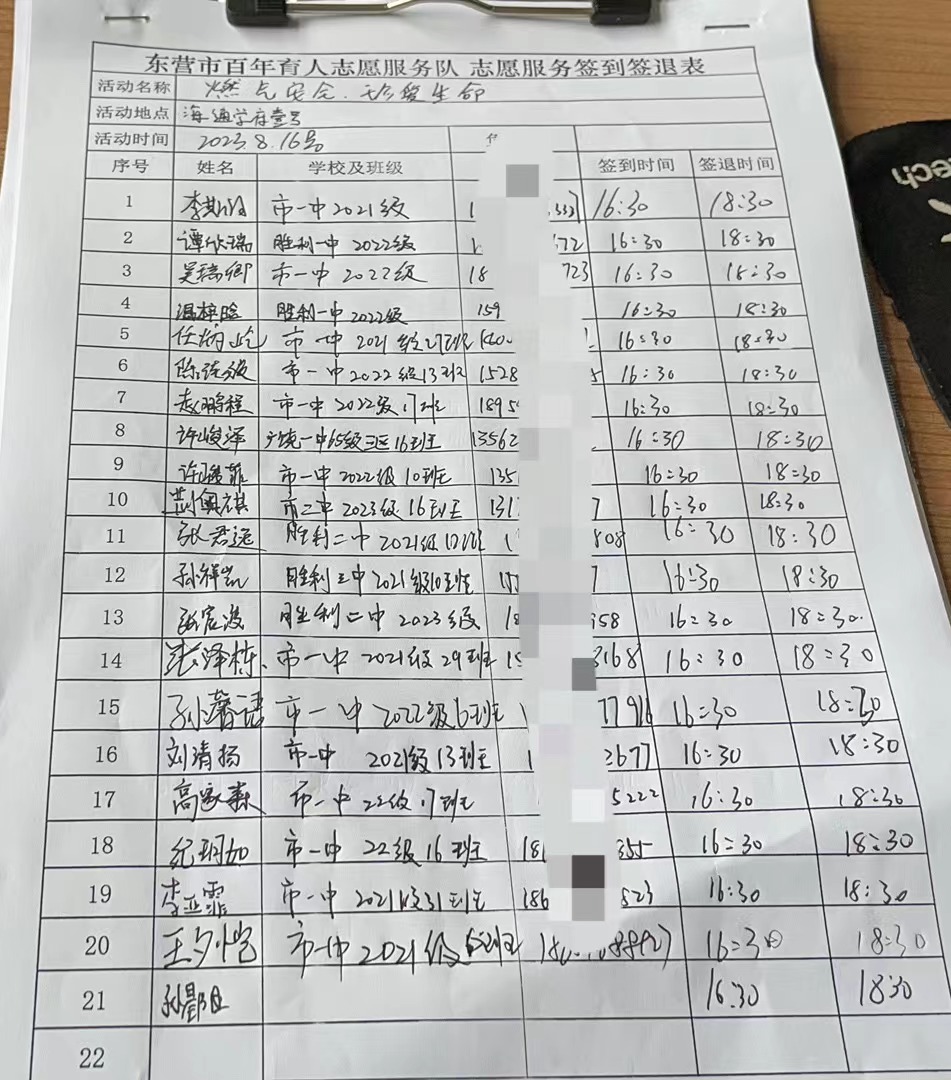 东营市百年育人志愿服务队 志愿服务签到签退表
活动名称 燃气安全.珍爱生命
活动地点 海通学府壹号
活动时间 2023.8.16号
序号 姓名 学校及班级 签到时间 签退时间
1 市一中2021级 16:30 18:30
2 谭欣瑞 胜利一中 2022级 672 16:30 18:30
3 吴瑞卿 市一中 2022级 18 723 16:30 18:30
4 温梓晗 胜利一中 2022级 159 16:30 18:30
5 市一中 2021级27班 16:30 18:30
6 市一中 2022级13班 1528 16:30 18:30
7 赵鹏程 市一中 2022级17班 1895 16:30 18:30
8 许峻泽 广饶一中65级三区16班 13562 16:30 18:30
9 市一中 2022级10班 135 16:30 18:30
10 市二中 2023级16班 131 7 16:30 18:30
11 张君逸 胜利二中 2021级 班 1 808 16:30 18:30
12 孙祥凯 胜利三中2021级10班 7 16:30 18:30
13 胜利二中 2023级 18 958 16:30 18:30.
14 张泽栋. 市一中 2021级 29班 3168 16:30 18:30
15 孙馨语 市一中 2022级6班 77916 16:30 18:30
16 刘清扬 市一中 2021级13班 1 2677 16:30 18:30
17 高家森 市一中 22级17班 5222 16:30 18:30
18 纪玥如 市一中 22级16班 186 355 16:30 18:30
19 李亚霏 市一中 2021级31班 186 523 16:30 18:30
20 王夕恺 市一中2021级 班 16:30 18:30
21 16:30 18:30
22
ech